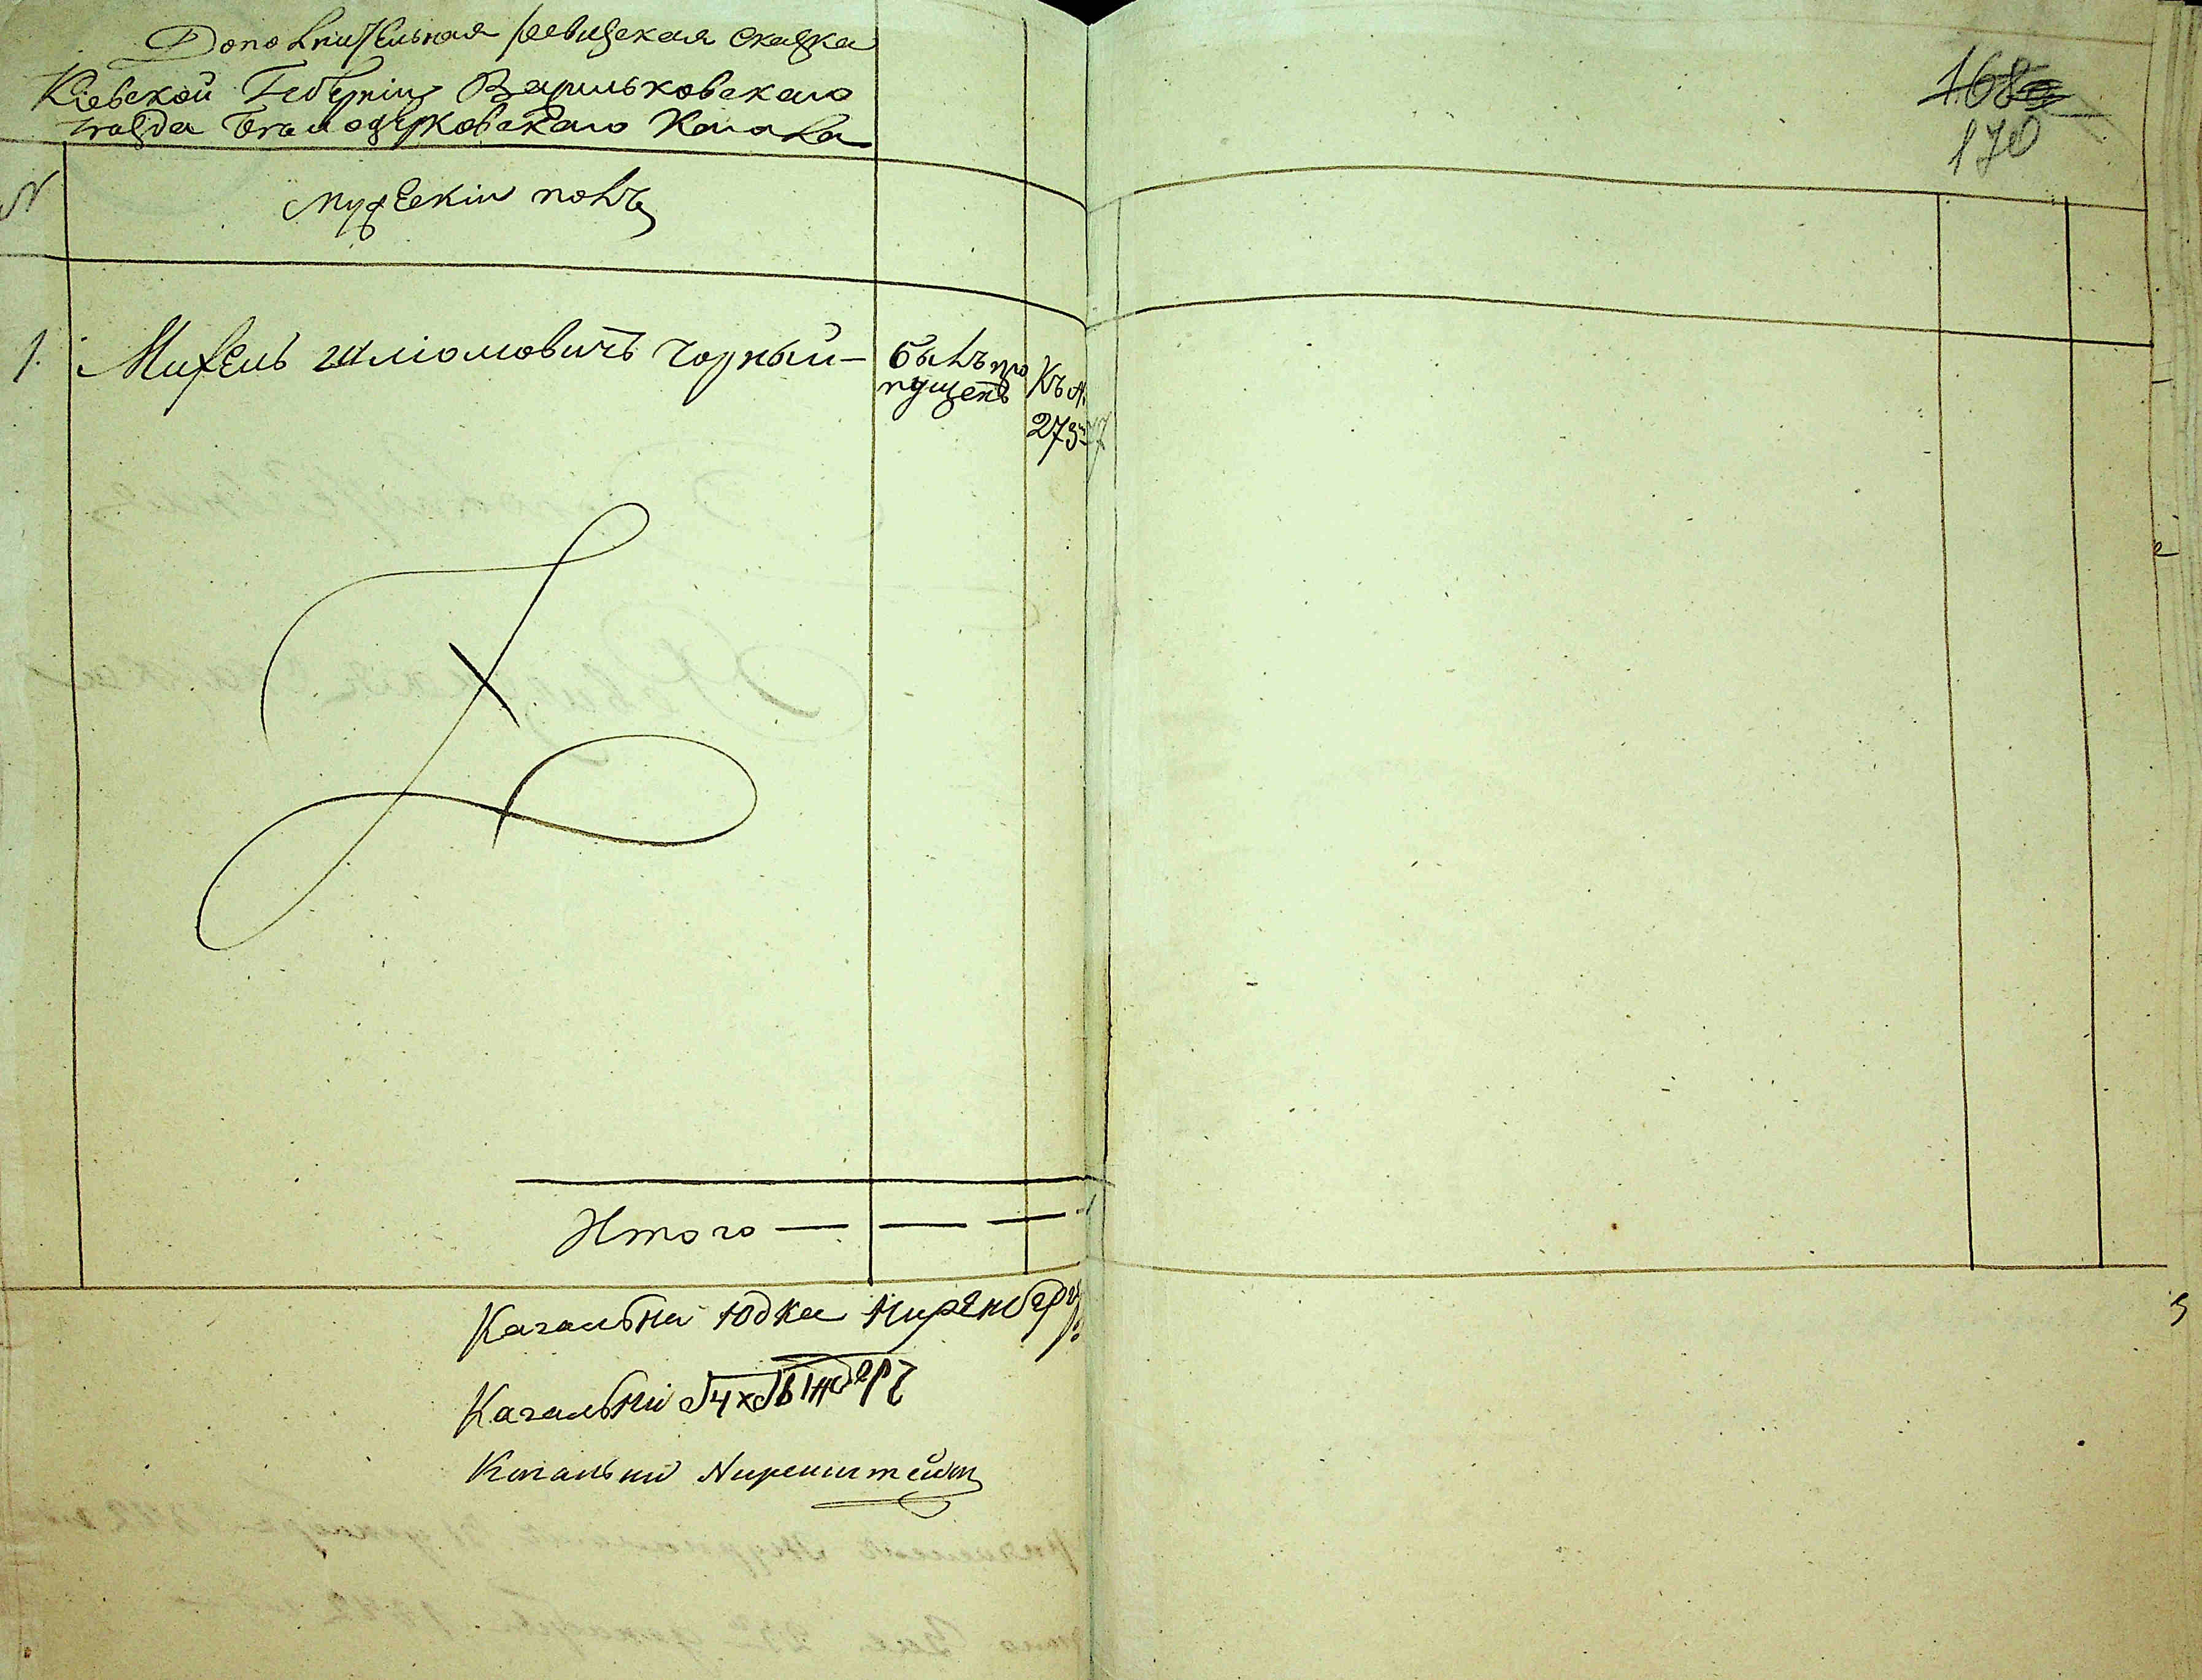 Дополнительная ревизская сказка
Кіевской Губерніи Васильковскаго
уѣзда Белоцерковскаго Кагала
N
мужескій полъ
1. Михель Шліомовичъ Чорный —
былъ про
пущенъ
Къ N.
273
Итого — — — 1
Кагальни Юдка Ниренберг
Кагальни
Кагальни Ниренштейн
168
170